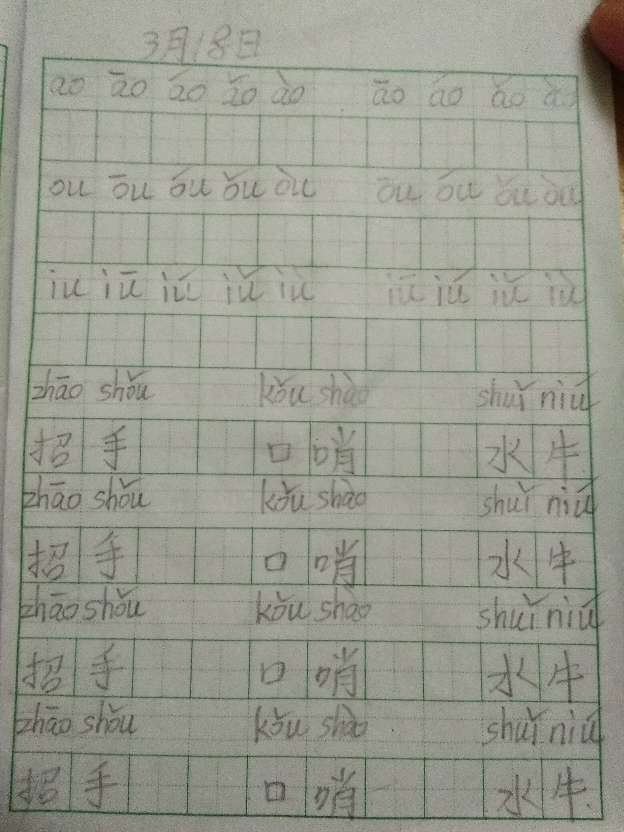 3月18日
ao āo áo ǎo ào āo áo ǎo ào
ou ōu óu ǒu òu ōu óu ǒu òu
iu iū iú iǔ iù iū iú iǔ iù
zhāo shǒu kǒu shào shuǐ niú
招手 口哨 水牛
zhāo shǒu kǒu shào shuǐ niú
招手 口哨 水牛
zhāo shǒu kǒu shào shuǐ niú
招手 口哨 水牛
zhāo shǒu kǒu shào shuǐ niú
招手 口哨 水牛